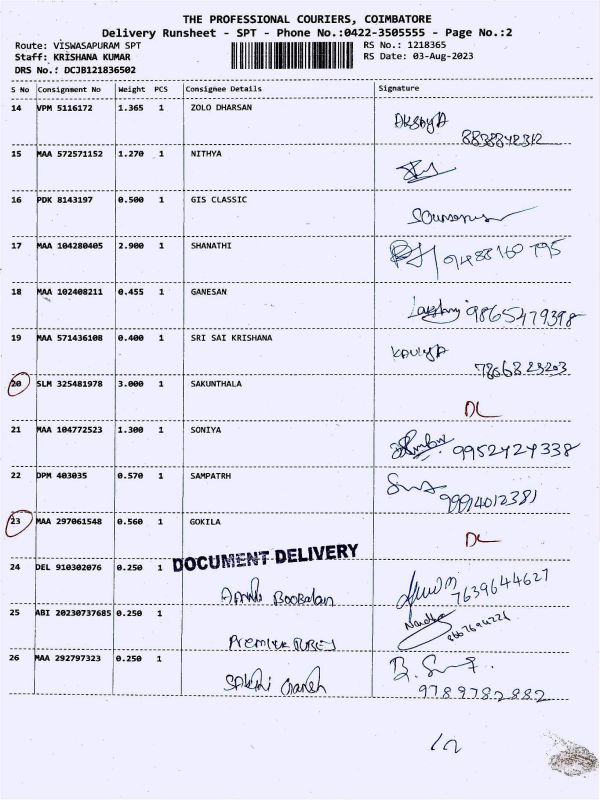 THE PROFESSIONAL COURIERS, COIMBATORE
Delivery Runsheet - SPT - Phone No.:0422-3505555 - Page No.:2
Route: VISWASAPURAM SPT RS No.: 1218365
Staff: KRISHANA KUMAR RS Date: 03-Aug-2023
DRS No.: DCJB121836502
S No Consignment No Weight PCS Consignee Details Signature
14 VPM 5116172 1.365 1 ZOLO DHARSAN
8838842312
15 MAA 572571152 1.270 1 NITHYA
16 PDK 8143197 0.500 1 GIS CLASSIC
17 MAA 104280405 2.900 1 SHANATHI
9488160795
18 MAA 102408211 0.455 1 GANESAN
9865479398
19 MAA 571436108 0.400 1 SRI SAI KRISHANA
KAVIYA
20 SLM 325481978 3.000 1 SAKUNTHALA
DL
21 MAA 104772523 1.300 1 SONIYA
9952424338
22 DPM 403035 0.570 1 SAMPATRH
23 MAA 297061548 0.560 1 GOKILA
DL
DOCUMENT DELIVERY
24 DEL 910302076 0.250 1
7639644627
25 ABI 20230737685 0.250 1
26 MAA 292797323 0.250 1
Sakthi Ganesh
9789782882